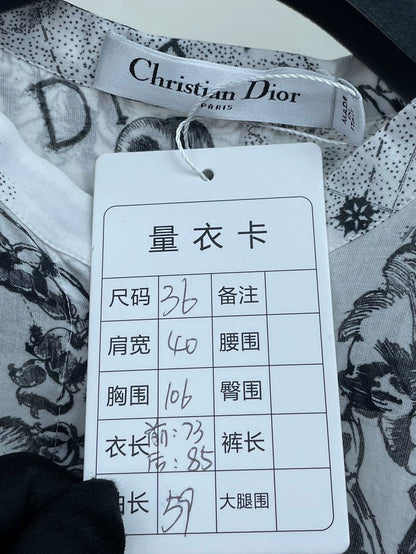 Christian Dior
PARIS
DI
量衣卡
尺码 36 备注
肩宽 40 腰围
胸围 106 臀围
衣长 前:73 后:85 裤长
袖长 59 大腿围